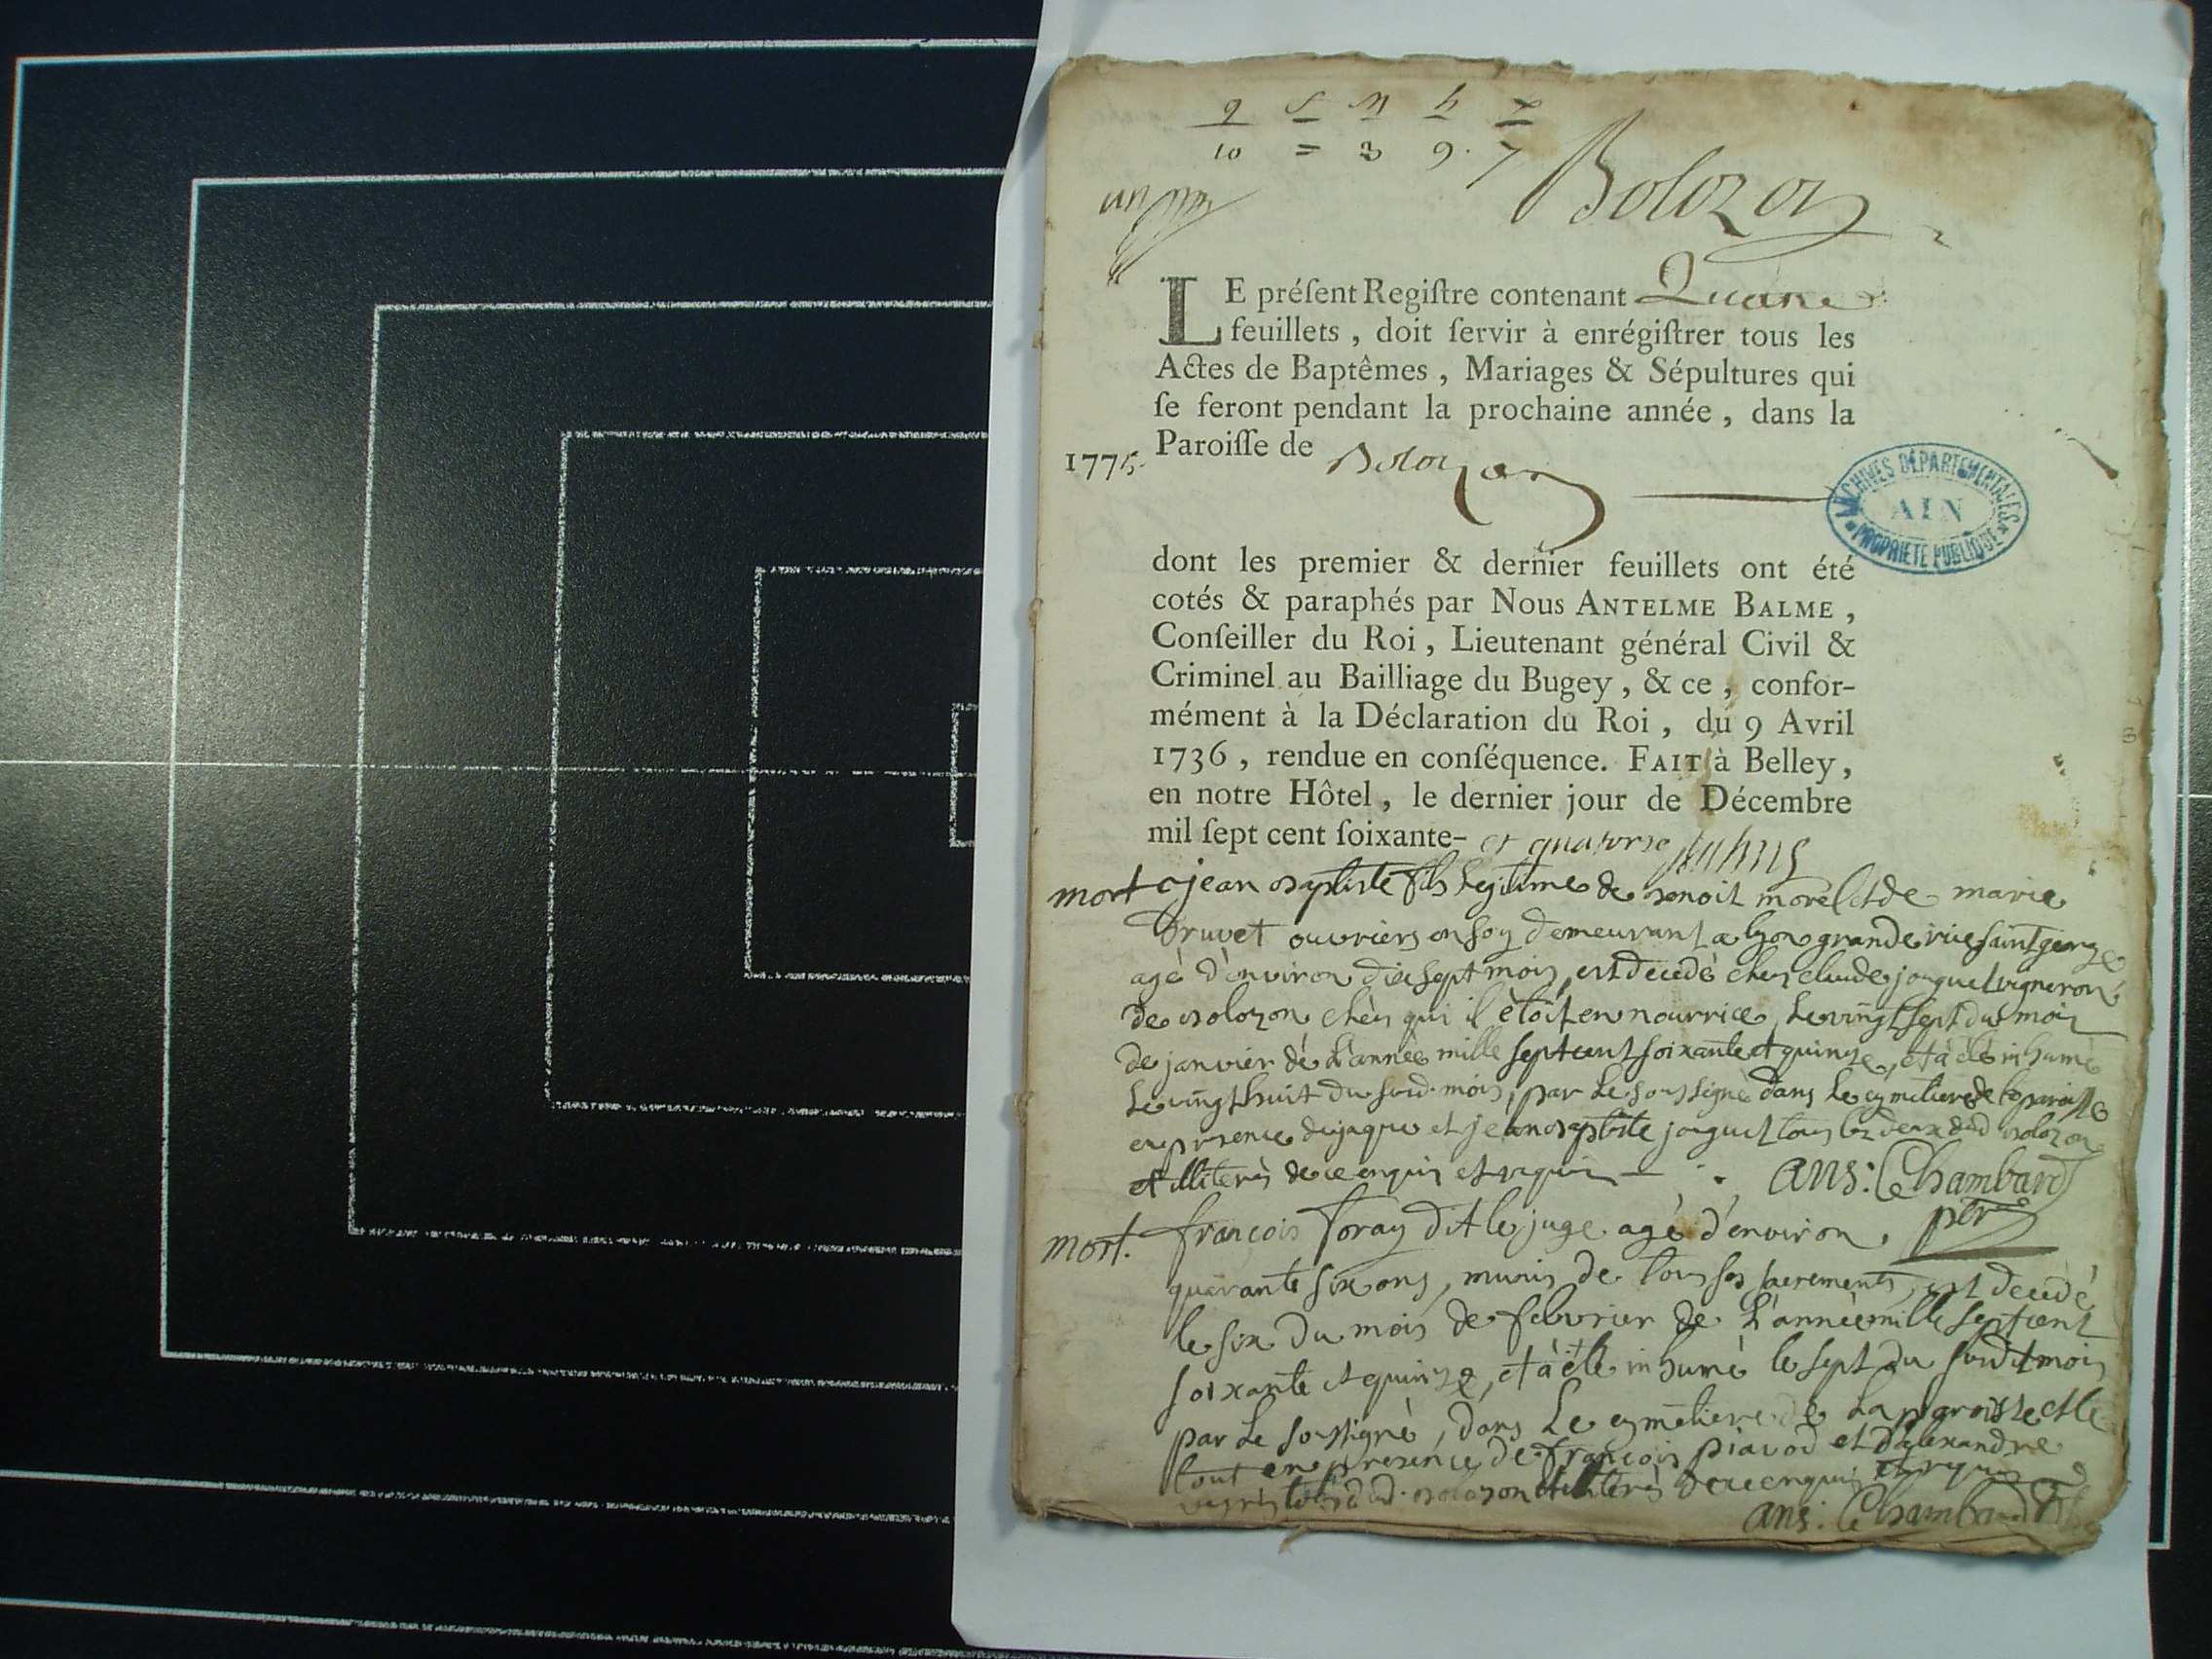 10 = 3 9. 7
Bolozon
LE préſent Regiſtre contenant
feuillets, doit ſervir à enrégiſtrer tous les
Actes de Baptêmes, Mariages & Sépultures qui
ſe feront pendant la prochaine année, dans la
1775. Paroiſſe de Bolozon
ARCHIVES DÉPARTEMENTALES
AIN
PROPRIÉTÉ PUBLIQUE
dont les premier & dernier feuillets ont été
cotés & paraphés par Nous ANTELME BALME,
Conſeiller du Roi, Lieutenant général Civil &
Criminel au Bailliage du Bugey, & ce, confor-
mément à la Déclaration du Roi, du 9 Avril
1736, rendue en conſéquence. FAIT à Belley,
en notre Hôtel, le dernier jour de Décembre
mil ſept cent ſoixante- et quatorse
mort jean baptiste fils legitime de benoit morel et de marie
Druvet ouvriers en soy demeurant a lyon grande rue saint george
agé d'environ dix sept mois, est decedé chez claude joguet vigneron
de bolozon chès qui il ètoit en nourrice, le vingt sept du mois
de janvier de l'année mille sept cent soixante et quinze, et à été inhumé
le vingt huit du susd. mois, par le soussigné dans le cymetiere de la paroisse
en presence de jaque et jean baptiste joguet tous les deux dud bolozon
et illiterés de ce enquis et requis ans: Chambard
mort. françois foray dit le juge agé d'environ ptre
quarante six ans, munis de tous ses sacrements, est decedé
le six du mois de febvrier de l'année mille sept cent
soixante et quinze, et à été inhumé le sept du susdit mois
par le soussigné, dans le cymetiere de la paroisse et le
tout en presence de françois piavod et d'alexandre
tous dud. bolozon et illiterés de ce enquis et requis
ans: Chambard